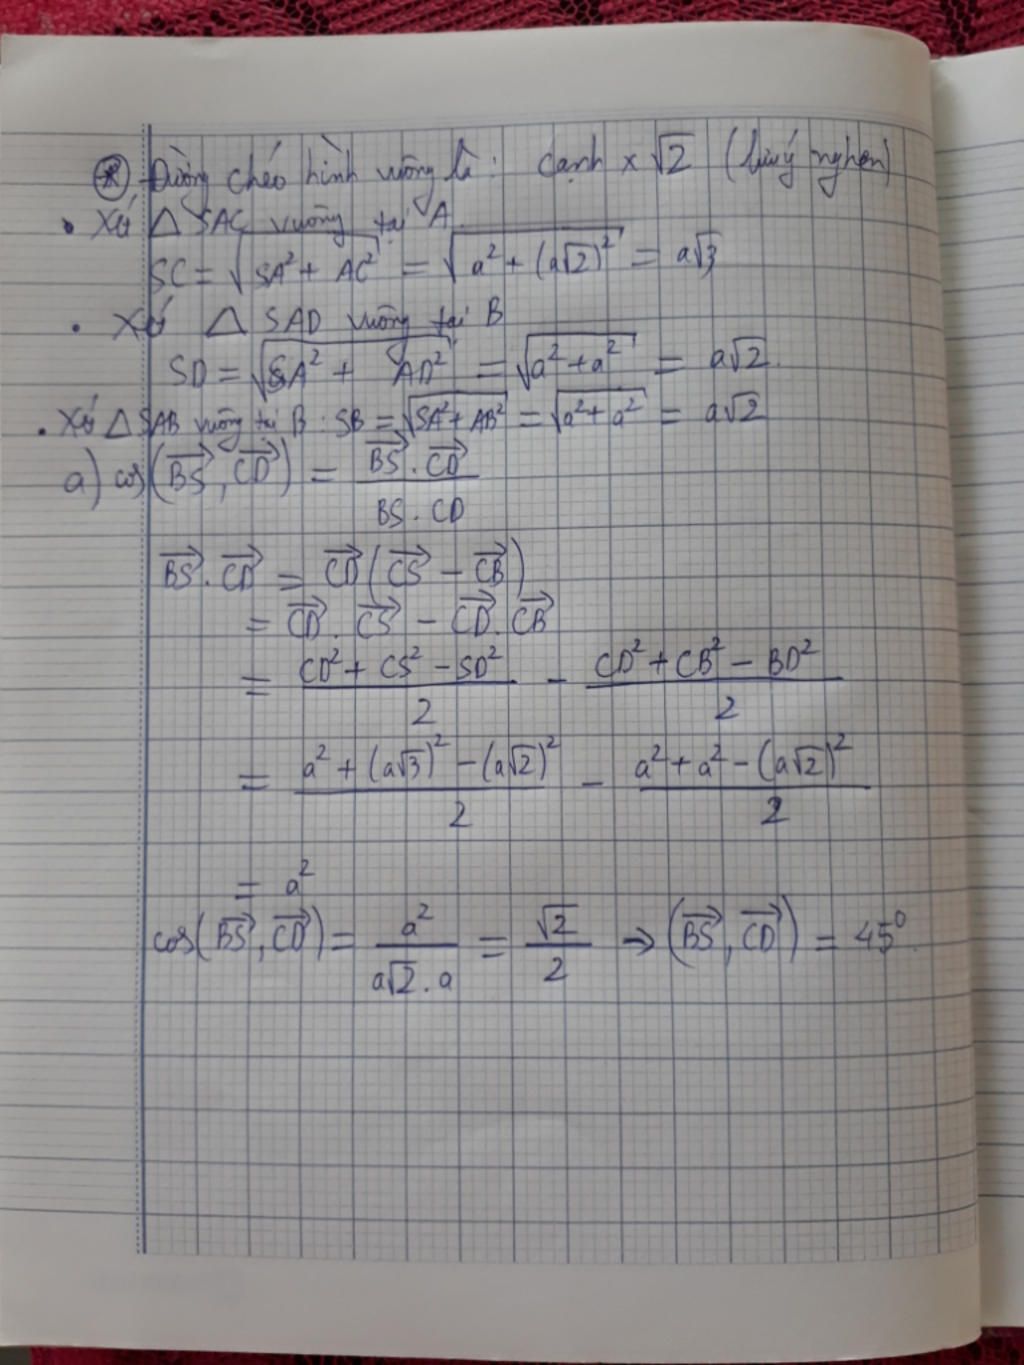 ⊛ Đường chéo hình vuông là: cạnh × √2 (lưu ý nghen)
• Xét △ SAC vuông tại A
SC = √(SA² + AC²) = √(a² + (a√2)²) = a√3
• Xét △ SAD vuông tại B
SD = √(SA² + AD²) = √(a² + a²) = a√2.
• Xét △ SAB vuông tại B : SB = √(SA² + AB²) = √(a² + a²) = a√2
a) cos(BS→, CD→) = (BS→ . CD→) / (BS . CD)
BS→ . CD→ = CD→ (CS→ − CB→)
= CD→ . CS→ − CD→ . CB→
= (CD² + CS² − SD²) / 2 − (CD² + CB² − BD²) / 2
= (a² + (a√3)² − (a√2)²) / 2 − (a² + a² − (a√2)²) / 2
= a²
cos(BS→, CD→) = a² / (a√2 . a) = √2 / 2 → (BS→, CD→) = 45⁰.